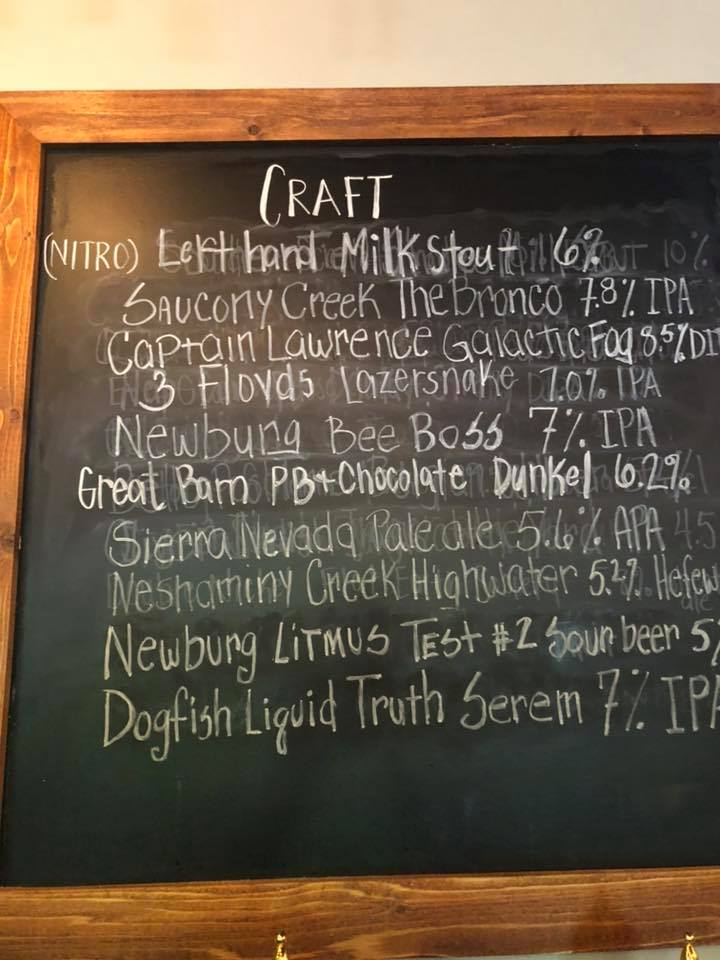 CRAFT
(NITRO) Left hand Milk Stout 6%
Saucony Creek The Bronco 7.8% IPA
Captain Lawrence Galactic Fog 8.5% DI
3 Floyds Lazersnake 7.0% IPA
Newburg Bee Boss 7% IPA
Great Barn PB+Chocolate Dunkel 6.2%
Sierra Nevada Pale ale 5.6% APA
Neshaminy Creek Highwater 5.2% Hefew
Newburg Litmus Test #2 Sour beer 5%
Dogfish Liquid Truth Serem 7% IPA